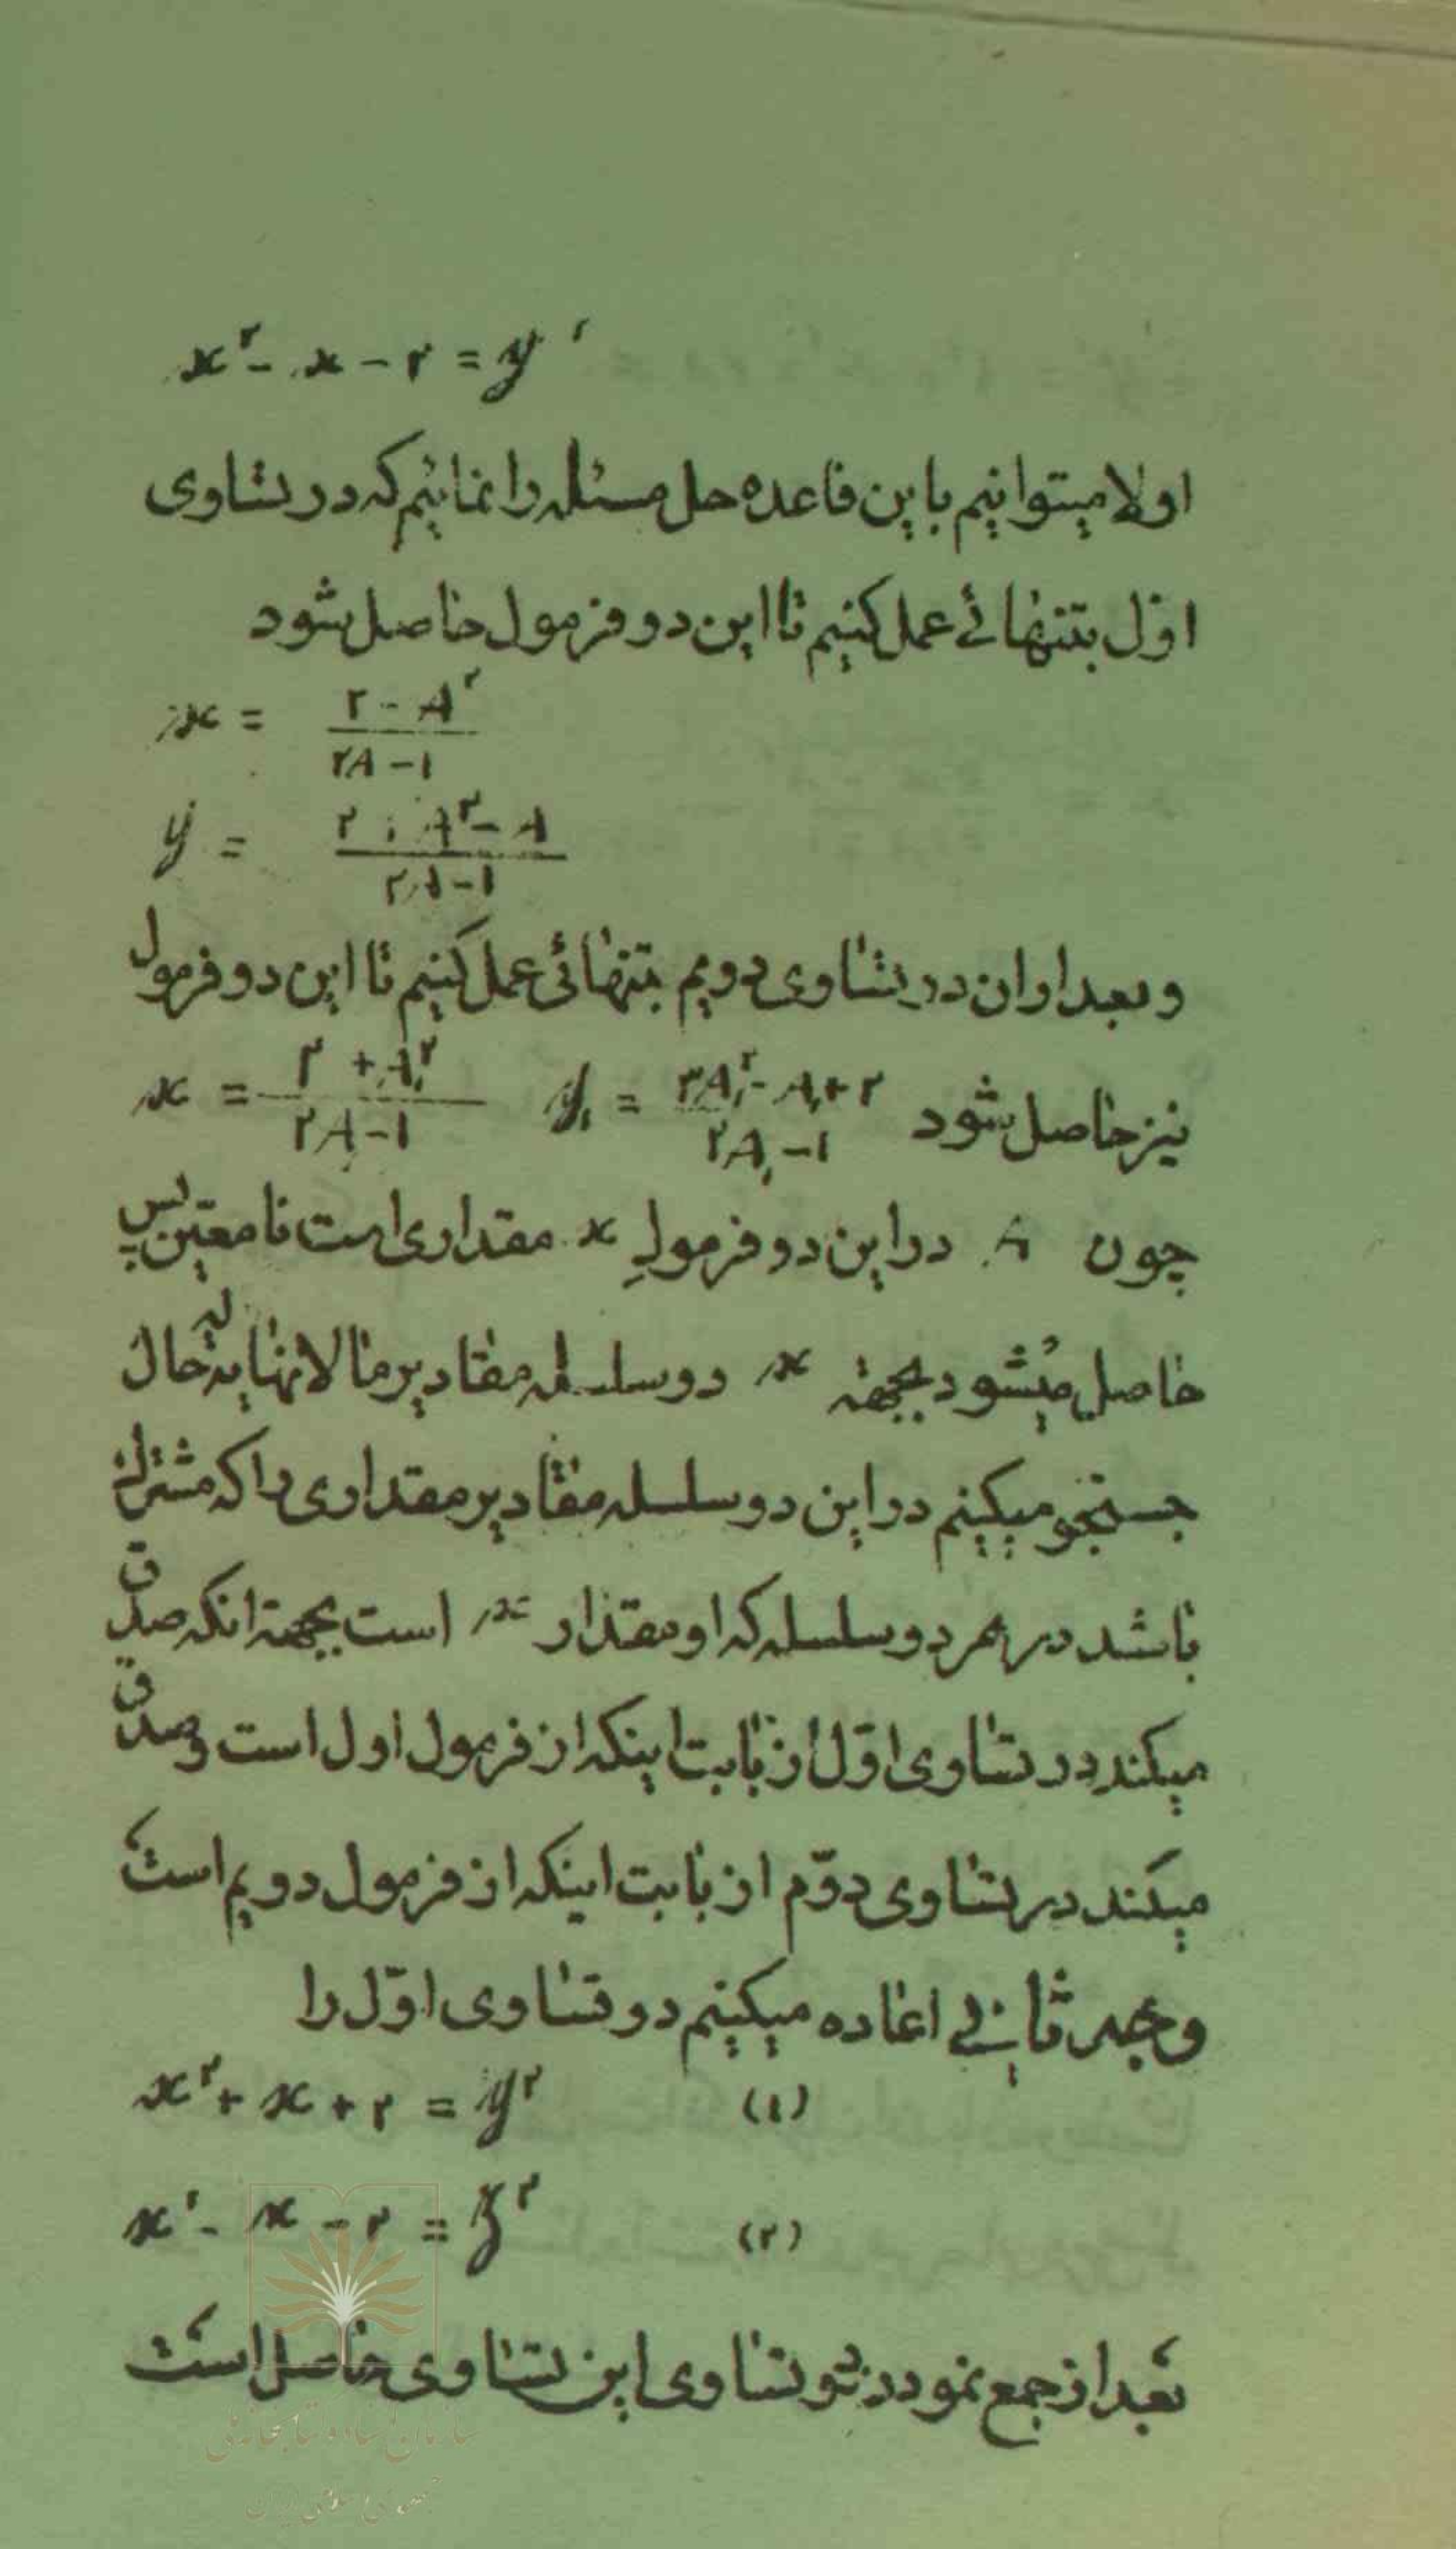 x^۲ - x - ۲ = y'
اولا میتوانیم باین قاعده حل مسئله را نمائیم که در تساوی
اوّل بتنهائے عمل کنیم تا این دو فرمول حاصل شود
x = (۲ - A^۲) / (۲A - ۱)
y = (۲ + A^۲ - A) / (۲A - ۱)
و بعد از ان در تساوی دویم بتنهائی عمل کنیم تا این دو فرمول
نیز حاصل شود x = (۲ + A,^۲) / (۲A - ۱) y, = (۲A,^۲ - A, + ۲) / (۲A, - ۱)
چون A در این دو فرمولِ x مقداری است نامعین پس
حاصل میشود بجهة x دو سلسله مقادیر مالانهایه له حال
جستجو میکنیم در این دو سلسله مقادیر مقداری را که مشترک
باشد در هر دو سلسله که او مقدار x است بجهة انکه صدق
میکند در تساوی اوّل از بابت اینکه از فرمول اول است و صدق
میکند در تساوی دوّم از بابت اینکه از فرمول دویم است
وجه ثانے اعاده میکنیم دو تساوی اوّل را
x^۲ + x + ۲ = y^۲ (۱)
x^۲ - x - ۲ = z^۲ (۲)
بعد از جمع نمودن دو تساوی این تساوی حاصل است
سازمان اسناد و کتابخانه ملی
جمهوری اسلامی ایران